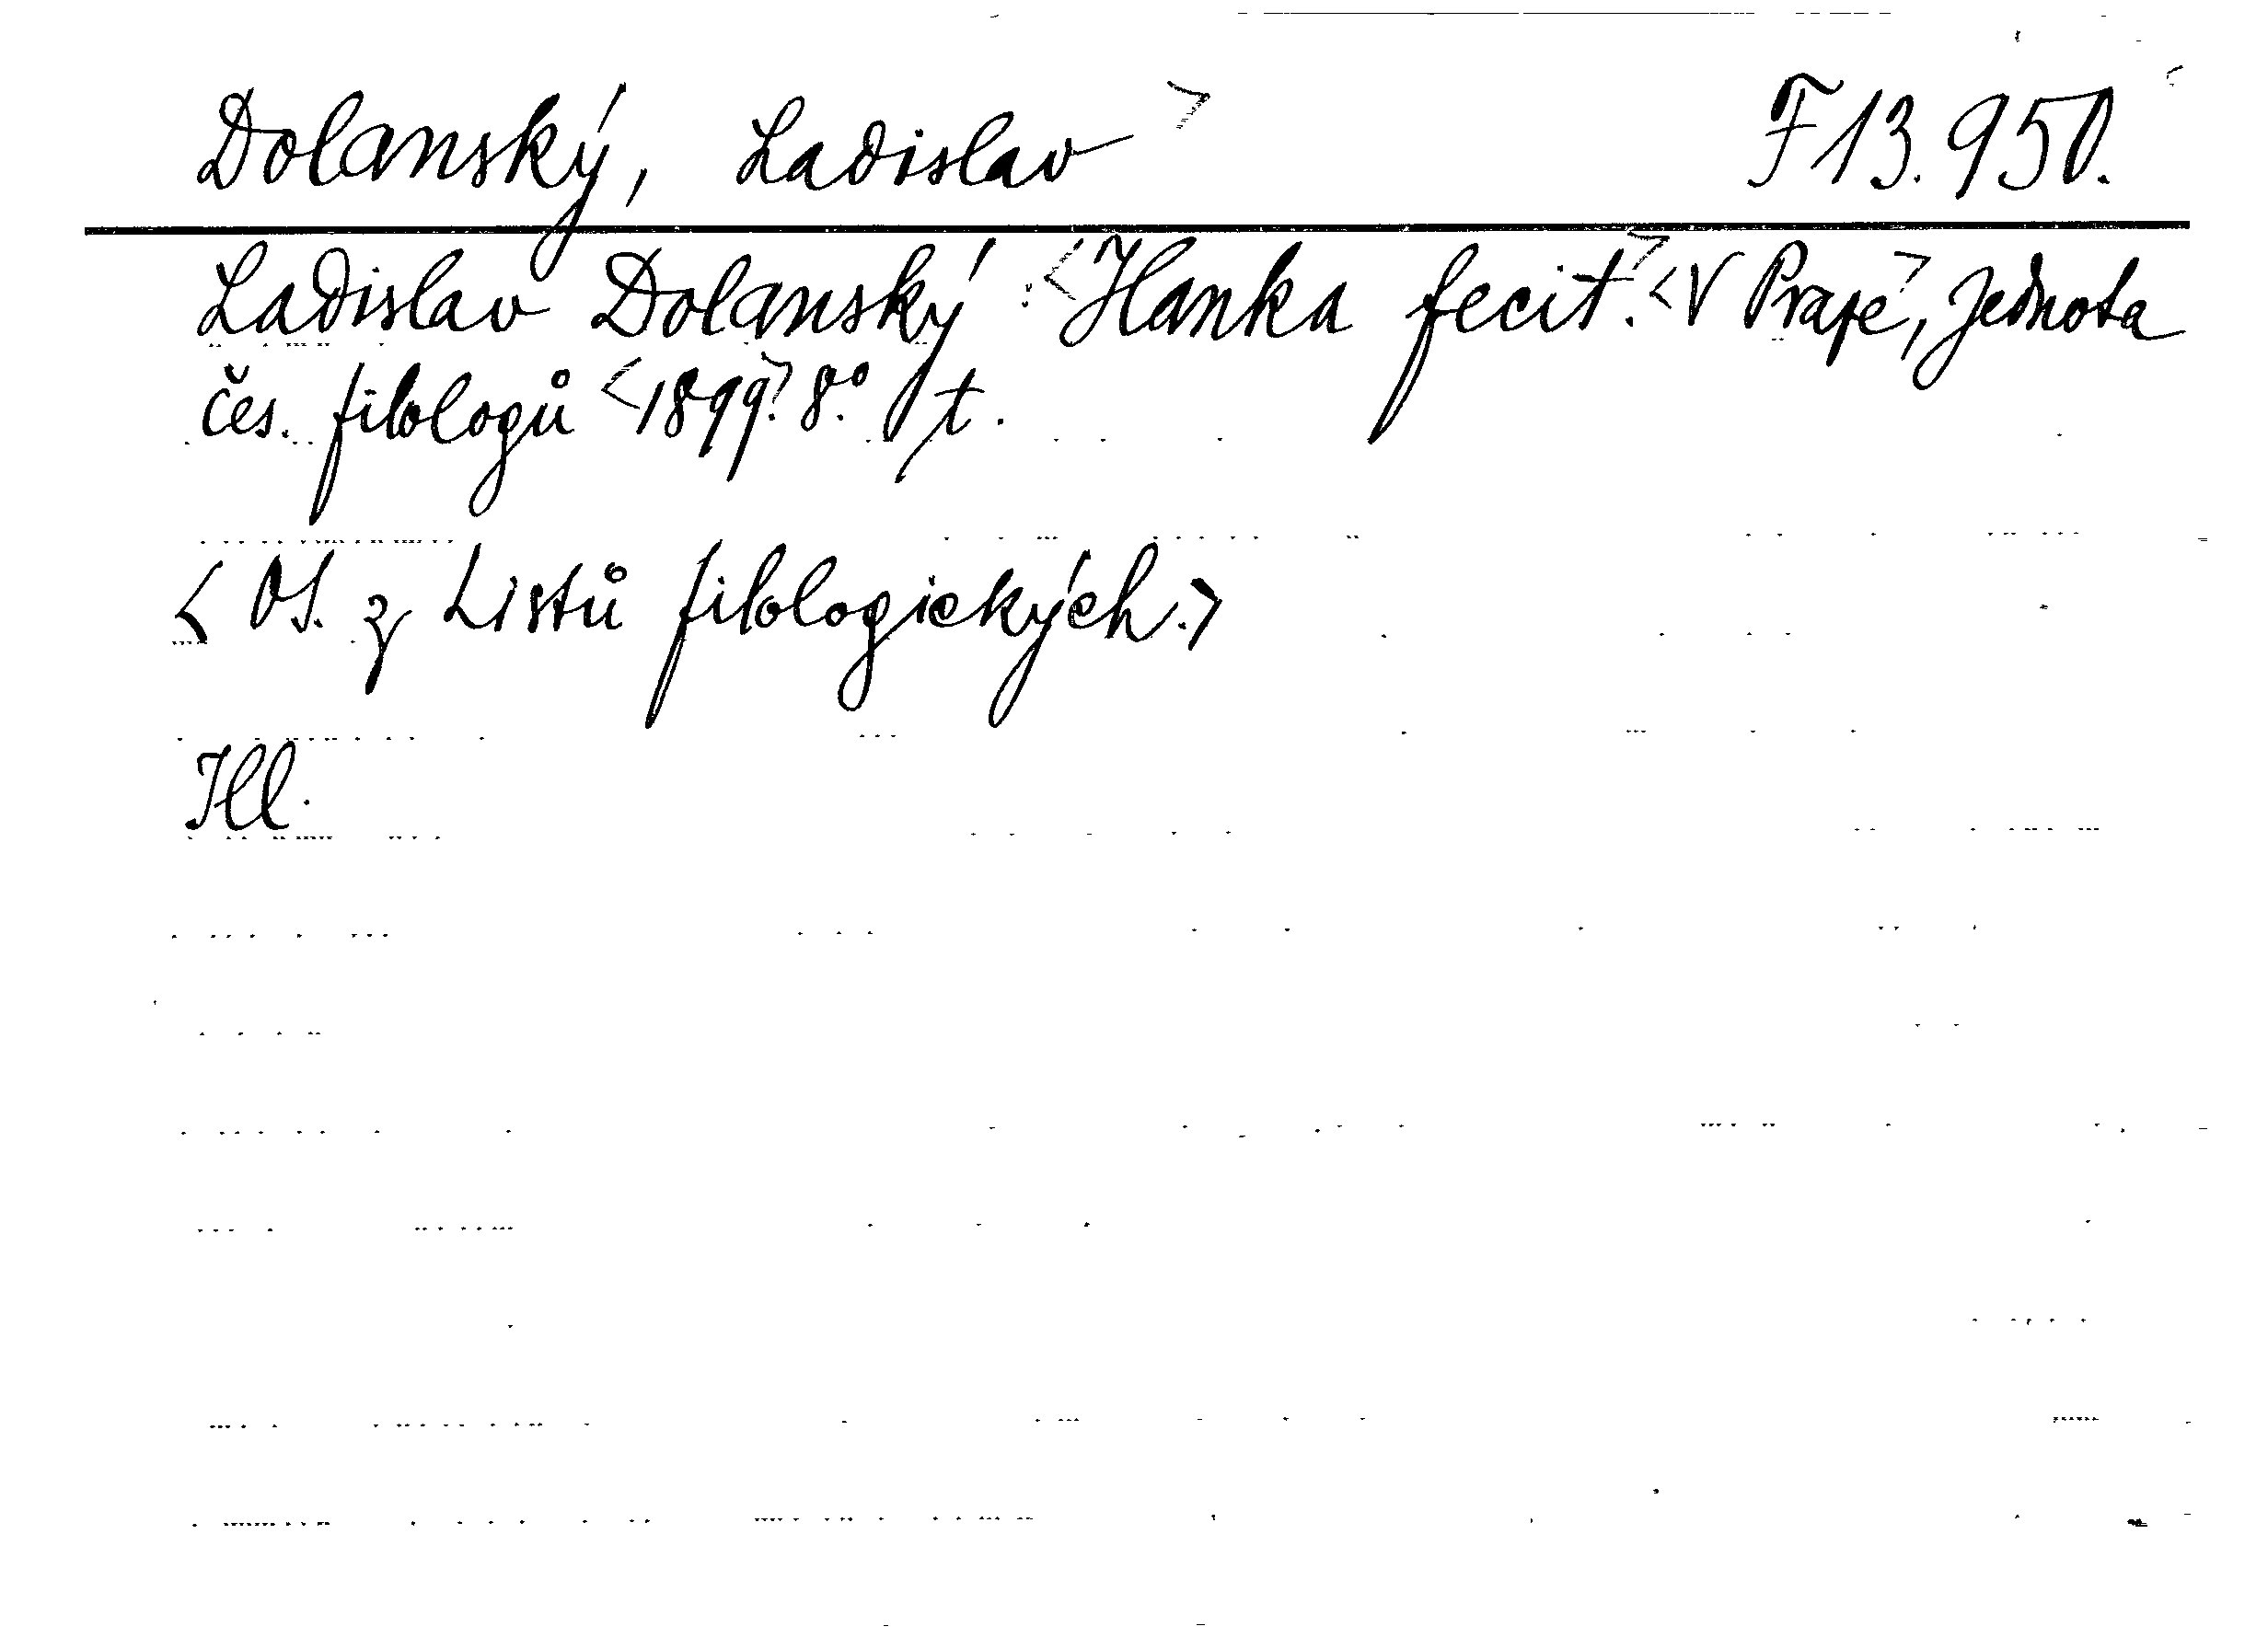 Dolanský, Ladislav> F 13.950.
Ladislav Dolanský :<Hanka fecit>. <V Praze>, Jednota
čes. filologů <1899>. 8.° t.
<Ot. z Listů filologických.>
Ill.